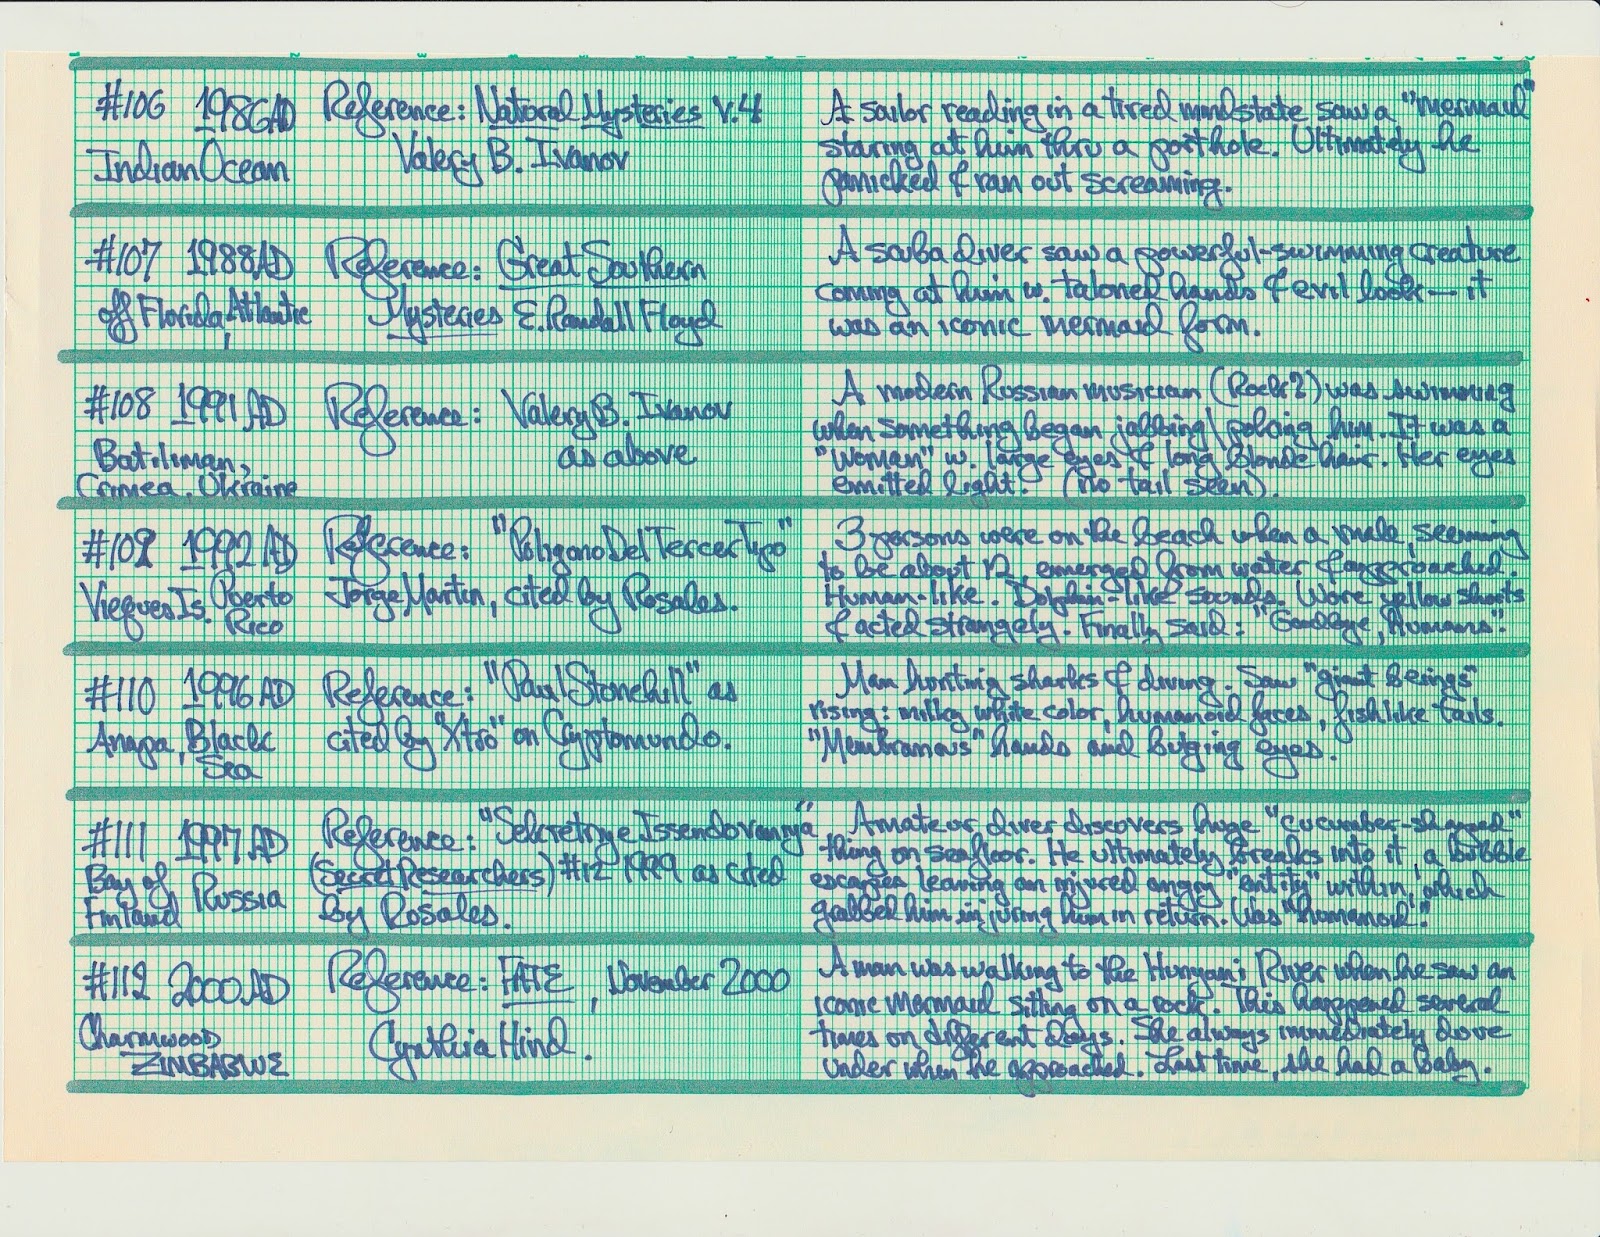 #106 1986AD Reference: Natural Mysteries V.4
Indian Ocean Valery B. Ivanov
A sailor reading in a tired mindstate saw a "mermaid"
staring at him thru a porthole. Ultimately he
panicked & ran out screaming.
#107 1988AD Reference: Great Southern
off Florida, Atlantic Mysteries E. Randall Floyd
A scuba diver saw a powerful-swimming creature
coming at him w. taloned hands & evil look — it
was an iconic mermaid form.
#108 1991AD Reference: Valery B. Ivanov
Batiliman, as above
Crimea, Ukraine
A modern Russian musician (Rock?) was swimming
when something began jabbing/poking him. It was a
"woman" w. large eyes & long blonde hair. Her eyes
emitted light. (no tail seen).
#109 1992AD Reference: "Poligono Del Tercer Tipo"
Vieques Is. Puerto Rico Jorge Martin, cited by Rosales.
3 persons were on the beach when a male, seeming
to be about 12, emerged from water & approached.
Human-like. Dolphin-like sounds. Wore yellow shorts
& acted strangely. Finally said: "Goodbye, Humans".
#110 1996AD Reference: "Paul Stonehill" as
Anapa, Black Sea cited by "Xtro" on Cryptomundo.
Man hunting sharks & diving. Saw "giant beings"
rising: milky white color, humanoid faces, fishlike tails.
"Membranous" hands and bulging eyes.
#111 1997AD Reference: "Sekretnye Issendovannya"
Bay of Finland Russia (Secret Researchers) #12 1999 as cited
by Rosales.
Amateur diver discovers huge "cucumber-shaped"
thing on seafloor. He ultimately breaks into it, a bubble
escapes leaving an injured angry "entity" within, which
grabbed him injuring him in return. Was "humanoid".
#112 2000AD Reference: FATE, November 2000
Charmwood Cynthia Hind.
ZIMBABWE
A man was walking to the Hunyani River when he saw an
iconic mermaid sitting on a rock. This happened several
times on different days. She always immediately dove
under when he approached. Last time, she had a baby.